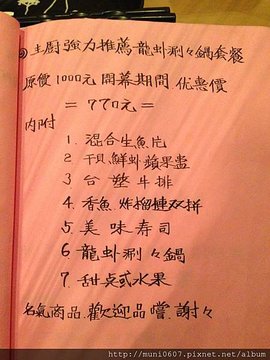 主廚強力推薦龍虾涮々鍋套餐
原價1000元 開幕期間 优惠價
=770元=
內附
1. 混合生魚片
2 干貝鮮虾蘋果盅
3 台塑牛排
4. 香魚炸榴槤双拼
5 美味寿司
6 龍虾涮々鍋
7 甜桌或水果
名氣商品.歡迎品嘗.謝々
http://muni0607.pixnet.net/album